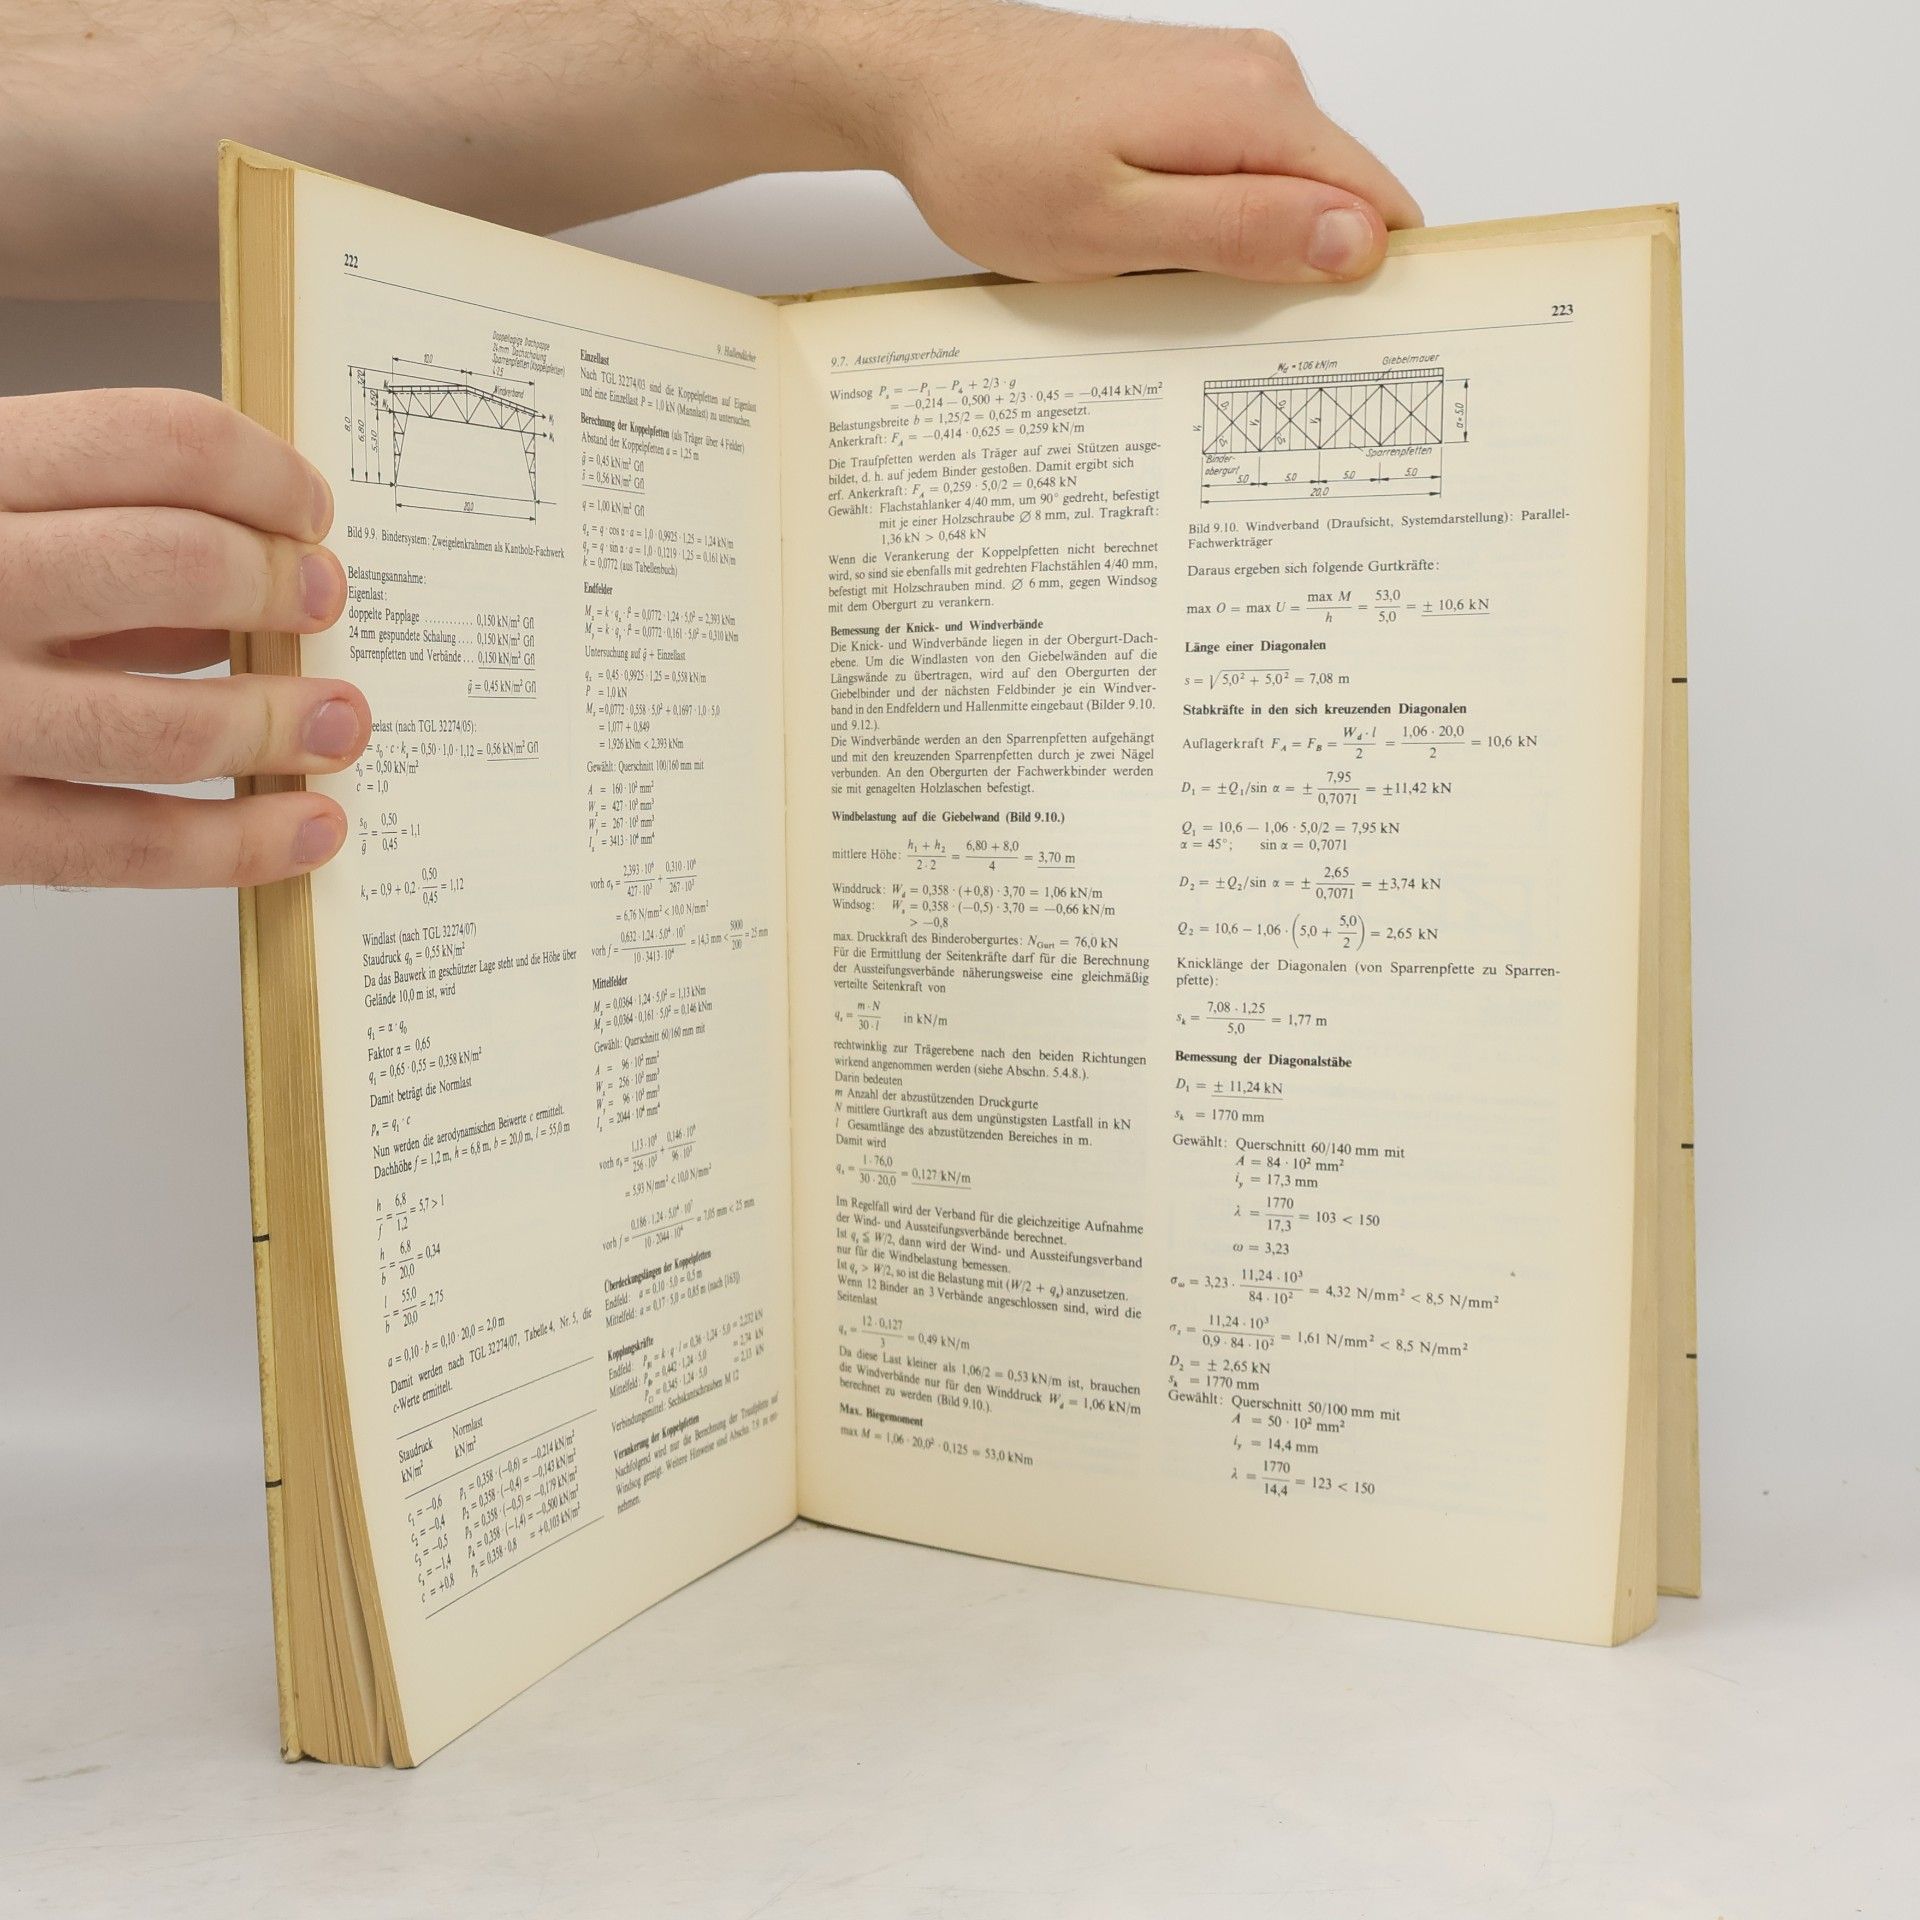 222
9. Hallendächer
Doppellagige Dachpappe
24mm Dachschalung
Sparrenpfetten (Koppelpfetten)
Windverband
10,0
8,0
6,80
5,30
20,0
Bild 9.9. Bindersystem: Zweigelenkrahmen als Kantholz-Fachwerk
Belastungsannahme:
Eigenlast:
doppelte Papplage ............ 0,150 kN/m² Gfl
24 mm gespundete Schalung .... 0,150 kN/m² Gfl
Sparrenpfetten und Verbände ... 0,150 kN/m² Gfl
g̅ = 0,45 kN/m² Gfl
eelast (nach TGL 32274/05):
= s₀ · c · kₛ = 0,50 · 1,0 · 1,12 = 0,56 kN/m² Gfl
s₀ = 0,50 kN/m²
c = 1,0
s₀/g̅ = 0,50/0,45 = 1,1
kₛ = 0,9 + 0,2 · 0,50/0,45 = 1,12
Windlast (nach TGL 32274/07)
Staudruck q₀ = 0,55 kN/m²
Da das Bauwerk in geschützter Lage steht und die Höhe über
Gelände 10,0 m ist, wird
q₁ = α · q₀
Faktor α = 0,65
q₁ = 0,65 · 0,55 = 0,358 kN/m²
Damit beträgt die Normlast
pₙ = q₁ · c
Nun werden die aerodynamischen Beiwerte c ermittelt.
Dachhöhe f = 1,2 m, h = 6,8 m, b = 20,0 m, l = 55,0 m
h/f = 6,8/1,2 = 5,7 > 1
h/b = 6,8/20,0 = 0,34
l/b = 55,0/20,0 = 2,75
a = 0,10 · b = 0,10 · 20,0 = 2,0 m
Damit werden nach TGL 32274/07, Tabelle 4, Nr. 5, die
c-Werte ermittelt.
Staudruck Normlast
kN/m² kN/m²
c₁ = −0,6 p₁ = 0,358 · (−0,6) = −0,214 kN/m²
c₂ = −0,4 p₂ = 0,358 · (−0,4) = −0,143 kN/m²
c₃ = −0,5 p₃ = 0,358 · (−0,5) = −0,179 kN/m²
= −1,4 p₄ = 0,358 · (−1,4) = −0,500 kN/m²
c = +0,8 p₅ = 0,358 · 0,8 = +0,103 kN/m²
Einzellast
Nach TGL 32274/03 sind die Koppelpfetten auf Eigenlast
und eine Einzellast P = 1,0 kN (Mannlast) zu untersuchen.
Berechnung der Koppelpfetten (als Träger über 4 Felder)
Abstand der Koppelpfetten a = 1,25 m
g̅ = 0,45 kN/m² Gfl
s̅ = 0,56 kN/m² Gfl
q = 1,00 kN/m² Gfl
q_z = q · cos α · a = 1,0 · 0,9925 · 1,25 = 1,24 kN/m
q_y = q · sin α · a = 1,0 · 0,1219 · 1,25 = 0,161 kN/m
k = 0,0772 (aus Tabellenbuch)
Endfelder
= k · q_z · l² = 0,0772 · 1,24 · 5,0² = 2,393 kNm
= k · q_y · l² = 0,0772 · 0,161 · 5,0² = 0,310 kNm
Untersuchung auf g̅ + Einzellast
q_z = 0,45 · 0,9925 · 1,25 = 0,558 kN/m
P = 1,0 kN
= 0,0772 · 0,558 · 5,0² + 0,1697 · 1,0 · 5,0
= 1,077 + 0,849
= 1,926 kNm < 2,393 kNm
Gewählt: Querschnitt 100/160 mm mit
A = 160 · 10² mm²
W = 427 · 10³ mm³
W = 267 · 10³ mm³
I = 3413 · 10⁴ mm⁴
vorh σ_b = 2,393 · 10⁶/427 · 10³ + 0,310 · 10⁶/267 · 10³
= 6,76 N/mm² < 10,0 N/mm²
vorh f = 0,632 · 1,24 · 5,0⁴ · 10⁷/10 · 3413 · 10⁴ = 14,3 mm < 5000/200 = 25 mm
Mittelfelder
= 0,0364 · 1,24 · 5,0² = 1,13 kNm
= 0,0364 · 0,161 · 5,0² = 0,146 kNm
Gewählt: Querschnitt 60/160 mm mit
A = 96 · 10² mm²
W = 256 · 10³ mm³
W = 96 · 10³ mm³
I = 2044 · 10⁴ mm⁴
vorh σ_b = 1,13 · 10⁶/256 · 10³ + 0,146 · 10⁶/96 · 10³
= 5,93 N/mm² < 10,0 N/mm²
vorh f = 0,186 · 1,24 · 5,0⁴ · 10⁷/10 · 2044 · 10⁴ = 7,05 mm < 25 mm
Überdeckungslängen der Koppelpfetten
Endfeld: a = 0,10 · 5,0 = 0,5 m
Mittelfeld: a = 0,17 · 5,0 = 0,85 m (nach [163])
Kopplungskräfte
Endfeld: = k · q · l = 0,36 · 1,24 · 5,0 = 2,232 kN
Mittelfeld: = 0,442 · 1,24 · 5,0 = 2,74 kN
= 0,345 · 1,24 · 5,0 = 2,13 kN
Verbindungsmittel: Sechskantschrauben M 12
Verankerung der Koppelpfetten
Nachfolgend wird nur die Berechnung der Traufpfette auf
Windsog gezeigt. Weitere Hinweise sind Abschn. 7.9. zu ent-
nehmen.
223
9.7. Aussteifungsverbände
Windsog Pₛ = −P₁ − P₄ + 2/3 · g
= −0,214 − 0,500 + 2/3 · 0,45 = −0,414 kN/m²
Belastungsbreite b = 1,25/2 = 0,625 m angesetzt.
Ankerkraft: F_A = −0,414 · 0,625 = 0,259 kN/m
Die Traufpfetten werden als Träger auf zwei Stützen ausge-
bildet, d. h. auf jedem Binder gestoßen. Damit ergibt sich
erf. Ankerkraft: F_A = 0,259 · 5,0/2 = 0,648 kN
Gewählt: Flachstahlanker 4/40 mm, um 90° gedreht, befestigt
mit je einer Holzschraube Ø 8 mm, zul. Tragkraft:
1,36 kN > 0,648 kN
Wenn die Verankerung der Koppelpfetten nicht berechnet
wird, so sind sie ebenfalls mit gedrehten Flachstählen 4/40 mm,
befestigt mit Holzschrauben mind. Ø 6 mm, gegen Windsog
mit dem Obergurt zu verankern.
Bemessung der Knick- und Windverbände
Die Knick- und Windverbände liegen in der Obergurt-Dach-
ebene. Um die Windlasten von den Giebelwänden auf die
Längswände zu übertragen, wird auf den Obergurten der
Giebelbinder und der nächsten Feldbinder je ein Windver-
band in den Endfeldern und Hallenmitte eingebaut (Bilder 9.10.
und 9.12.).
Die Windverbände werden an den Sparrenpfetten aufgehängt
und mit den kreuzenden Sparrenpfetten durch je zwei Nägel
verbunden. An den Obergurten der Fachwerkbinder werden
sie mit genagelten Holzlaschen befestigt.
Windbelastung auf die Giebelwand (Bild 9.10.)
mittlere Höhe: h₁ + h₂/2 · 2 = 6,80 + 8,0/4 = 3,70 m
Winddruck: W_d = 0,358 · (+0,8) · 3,70 = 1,06 kN/m
Windsog: Wₛ = 0,358 · (−0,5) · 3,70 = −0,66 kN/m
> −0,8
max. Druckkraft des Binderobergurtes: N_Gurt = 76,0 kN
Für die Ermittlung der Seitenkräfte darf für die Berechnung
der Aussteifungsverbände näherungsweise eine gleichmäßig
verteilte Seitenkraft von
qₛ = m · N/30 · l in kN/m
rechtwinklig zur Trägerebene nach den beiden Richtungen
wirkend angenommen werden (siehe Abschn. 5.4.8.).
Darin bedeuten
m Anzahl der abzustützenden Druckgurte
N mittlere Gurtkraft aus dem ungünstigsten Lastfall in kN
l Gesamtlänge des abzustützenden Bereiches in m.
Damit wird
qₛ = 1 · 76,0/30 · 20,0 = 0,127 kN/m
Im Regelfall wird der Verband für die gleichzeitige Aufnahme
der Wind- und Aussteifungsverbände berechnet.
Ist qₛ ≦ W/2, dann wird der Wind- und Aussteifungsverband
nur für die Windbelastung bemessen.
Ist qₛ > W/2, so ist die Belastung mit (W/2 + qₛ) anzusetzen.
Wenn 12 Binder an 3 Verbände angeschlossen sind, wird die
Seitenlast
qₛ = 12 · 0,127/3 = 0,49 kN/m
Da diese Last kleiner als 1,06/2 = 0,53 kN/m ist, brauchen
die Windverbände nur für den Winddruck W_d = 1,06 kN/m
berechnet zu werden (Bild 9.10.).
Max. Biegemoment
max M = 1,06 · 20,0² · 0,125 = 53,0 kNm
W_d = 1,06 kN/m
Giebelmauer
a = 5,0
Binder-
obergurt
Sparrenpfetten
5,0 5,0 5,0 5,0
20,0
Bild 9.10. Windverband (Draufsicht, Systemdarstellung): Parallel-
Fachwerkträger
Daraus ergeben sich folgende Gurtkräfte:
max O = max U = max M/h = 53,0/5,0 = ± 10,6 kN
Länge einer Diagonalen
s = √5,0² + 5,0² = 7,08 m
Stabkräfte in den sich kreuzenden Diagonalen
Auflagerkraft F_A = F_B = W_d · l/2 = 1,06 · 20,0/2 = 10,6 kN
D₁ = ±Q₁/sin α = ± 7,95/0,7071 = ±11,42 kN
Q₁ = 10,6 − 1,06 · 5,0/2 = 7,95 kN
α = 45°; sin α = 0,7071
D₂ = ±Q₂/sin α = ± 2,65/0,7071 = ±3,74 kN
Q₂ = 10,6 − 1,06 · (5,0 + 5,0/2) = 2,65 kN
Knicklänge der Diagonalen (von Sparrenpfette zu Sparren-
pfette):
sₖ = 7,08 · 1,25/5,0 = 1,77 m
Bemessung der Diagonalstäbe
D₁ = ± 11,24 kN
sₖ = 1770 mm
Gewählt: Querschnitt 60/140 mm mit
A = 84 · 10² mm²
i_y = 17,3 mm
λ = 1770/17,3 = 103 < 150
ω = 3,23
σ_ω = 3,23 · 11,24 · 10³/84 · 10² = 4,32 N/mm² < 8,5 N/mm²
σ_z = 11,24 · 10³/0,9 · 84 · 10² = 1,61 N/mm² < 8,5 N/mm²
D₂ = ± 2,65 kN
sₖ = 1770 mm
Gewählt: Querschnitt 50/100 mm mit
A = 50 · 10² mm²
i_y = 14,4 mm
λ = 1770/14,4 = 123 < 150